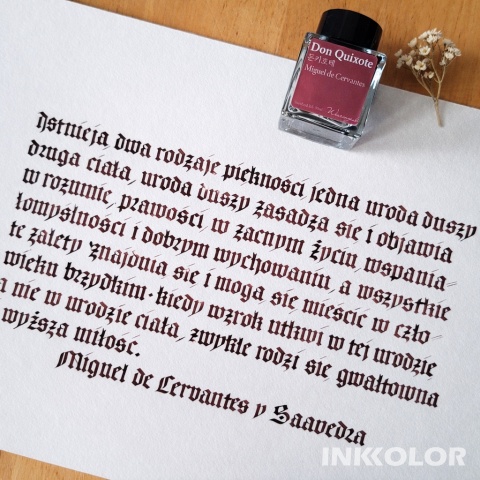 Don Quixote
돈키호테
Miguel de Cervantes
Istnieją dwa rodzaje piękności jedna uroda duszy
druga ciała, uroda duszy zasadza się i objawia
w rozumie, prawości, w zacnym życiu wspania=
łomyślności i dobrym wychowaniu, a wszystkie
te zalety znajdują się i mogą się mieścić w czło=
wieku brzydkim. kiedy wzrok utkwi w tej urodzie
a nie w urodzie ciała, zwykle rodzi się gwałtowna
wyższa miłość.
Miguel de Cervantes y Saavedra
INKKOLOR